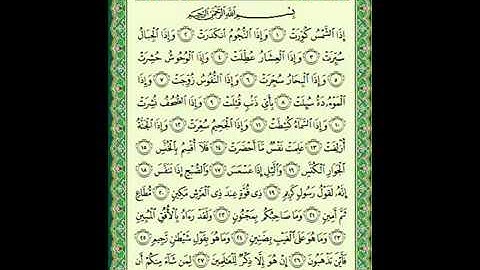 بِسْمِ اللَّهِ الرَّحْمَٰنِ الرَّحِيمِ
إِذَا الشَّمْسُ كُوِّرَتْ ١ وَإِذَا النُّجُومُ انْكَدَرَتْ ٢ وَإِذَا الْجِبَالُ
سُيِّرَتْ ٣ وَإِذَا الْعِشَارُ عُطِّلَتْ ٤ وَإِذَا الْوُحُوشُ حُشِرَتْ
٥ وَإِذَا الْبِحَارُ سُجِّرَتْ ٦ وَإِذَا النُّفُوسُ زُوِّجَتْ ٧ وَإِذَا
الْمَوْءُدَةُ سُئِلَتْ ٨ بِأَيِّ ذَنْبٍ قُتِلَتْ ٩ وَإِذَا الصُّحُفُ نُشِرَتْ
١٠ وَإِذَا السَّمَاءُ كُشِطَتْ ١١ وَإِذَا الْجَحِيمُ سُعِّرَتْ ١٢ وَإِذَا الْجَنَّةُ
أُزْلِفَتْ ١٣ عَلِمَتْ نَفْسٌ مَا أَحْضَرَتْ ١٤ فَلَا أُقْسِمُ بِالْخُنَّسِ ١٥
الْجَوَارِ الْكُنَّسِ ١٦ وَاللَّيْلِ إِذَا عَسْعَسَ ١٧ وَالصُّبْحِ إِذَا تَنَفَّسَ ١٨
إِنَّهُ لَقَوْلُ رَسُولٍ كَرِيمٍ ١٩ ذِي قُوَّةٍ عِنْدَ ذِي الْعَرْشِ مَكِينٍ ٢٠ مُطَاعٍ
ثَمَّ أَمِينٍ ٢١ وَمَا صَاحِبُكُمْ بِمَجْنُونٍ ٢٢ وَلَقَدْ رَآهُ بِالْأُفُقِ الْمُبِينِ
٢٣ وَمَا هُوَ عَلَى الْغَيْبِ بِضَنِينٍ ٢٤ وَمَا هُوَ بِقَوْلِ شَيْطَانٍ رَجِيمٍ ٢٥
فَأَيْنَ تَذْهَبُونَ ٢٦ إِنْ هُوَ إِلَّا ذِكْرٌ لِلْعَالَمِينَ ٢٧ لِمَنْ شَاءَ مِنْكُمْ أَنْ